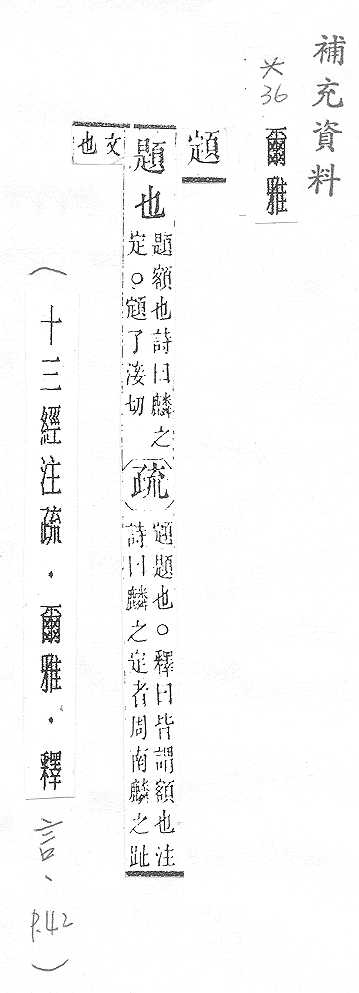 補充資料
36
爾雅
顁
題也
題額也詩曰麟之
定○顁丁切
疏
顁題也○釋曰皆謂額也注
詩曰麟之定者周南麟之趾
文
也
(十三經注疏・爾雅・釋言、P.42)